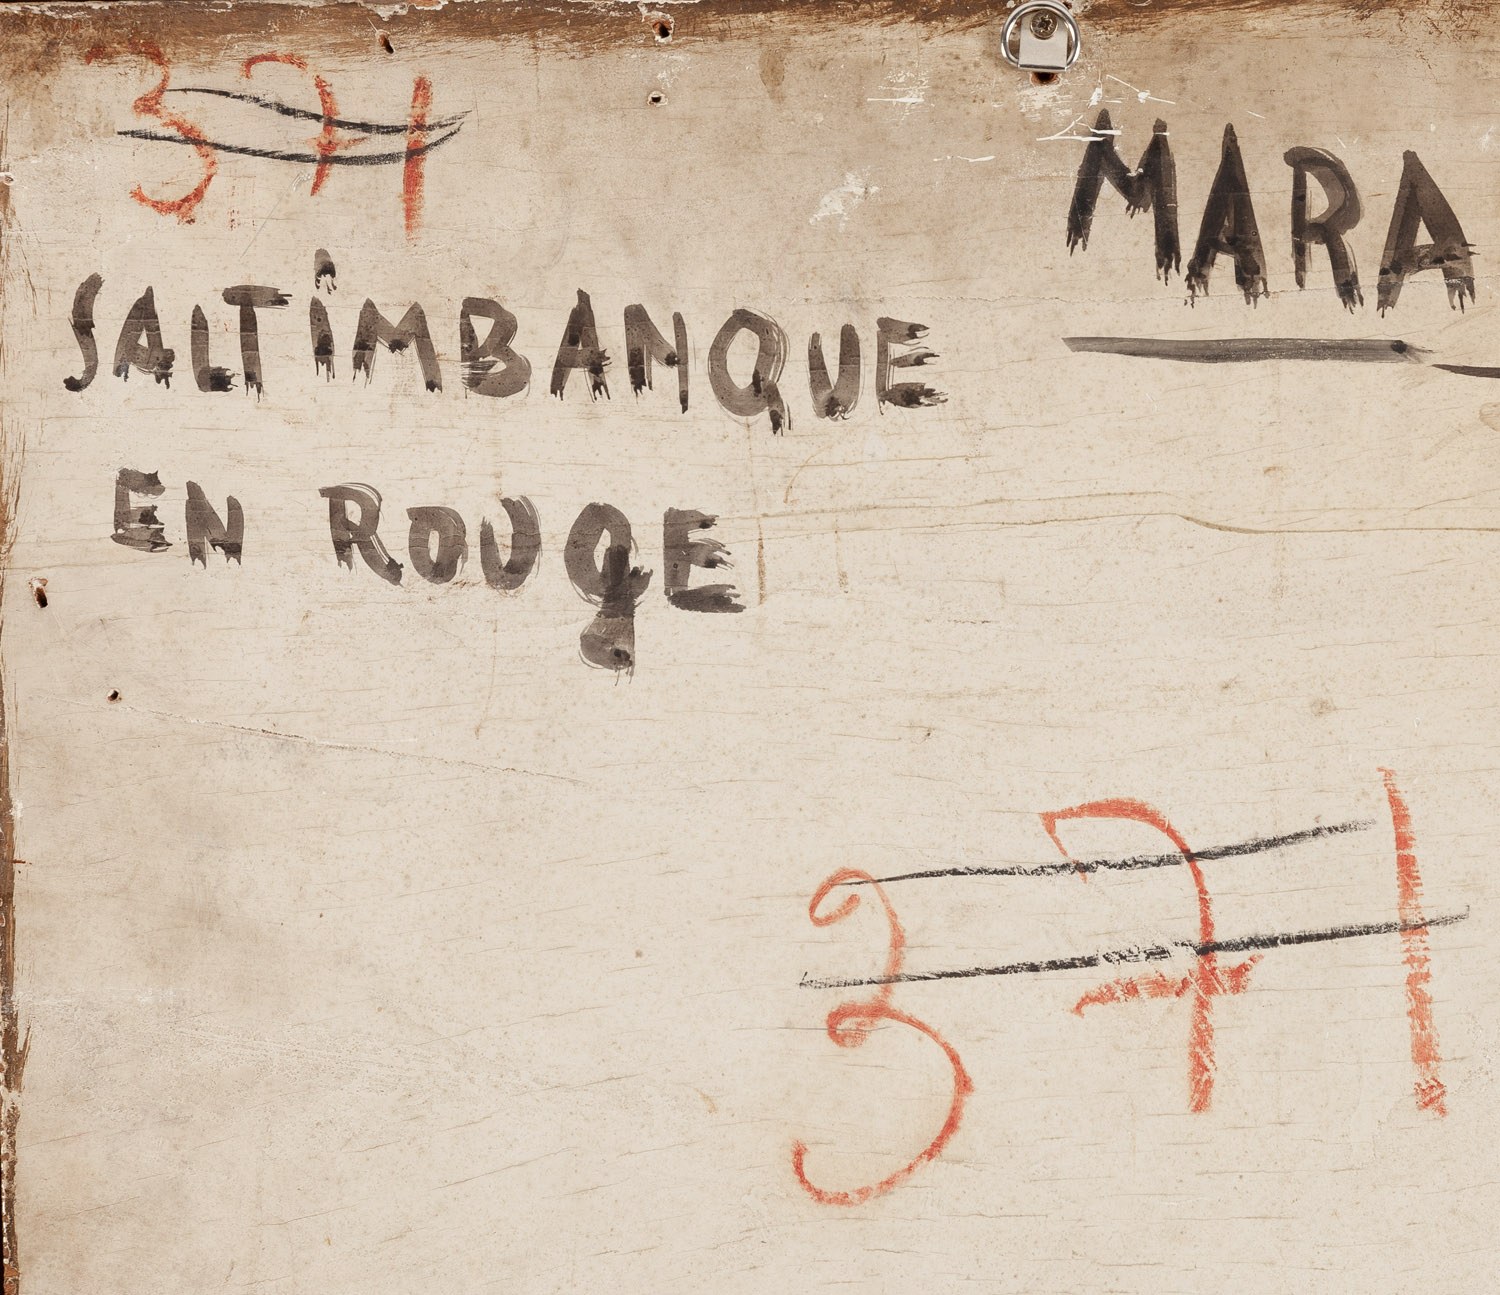 371
MARA
SALTiMBANQUE
EN ROUGE
371